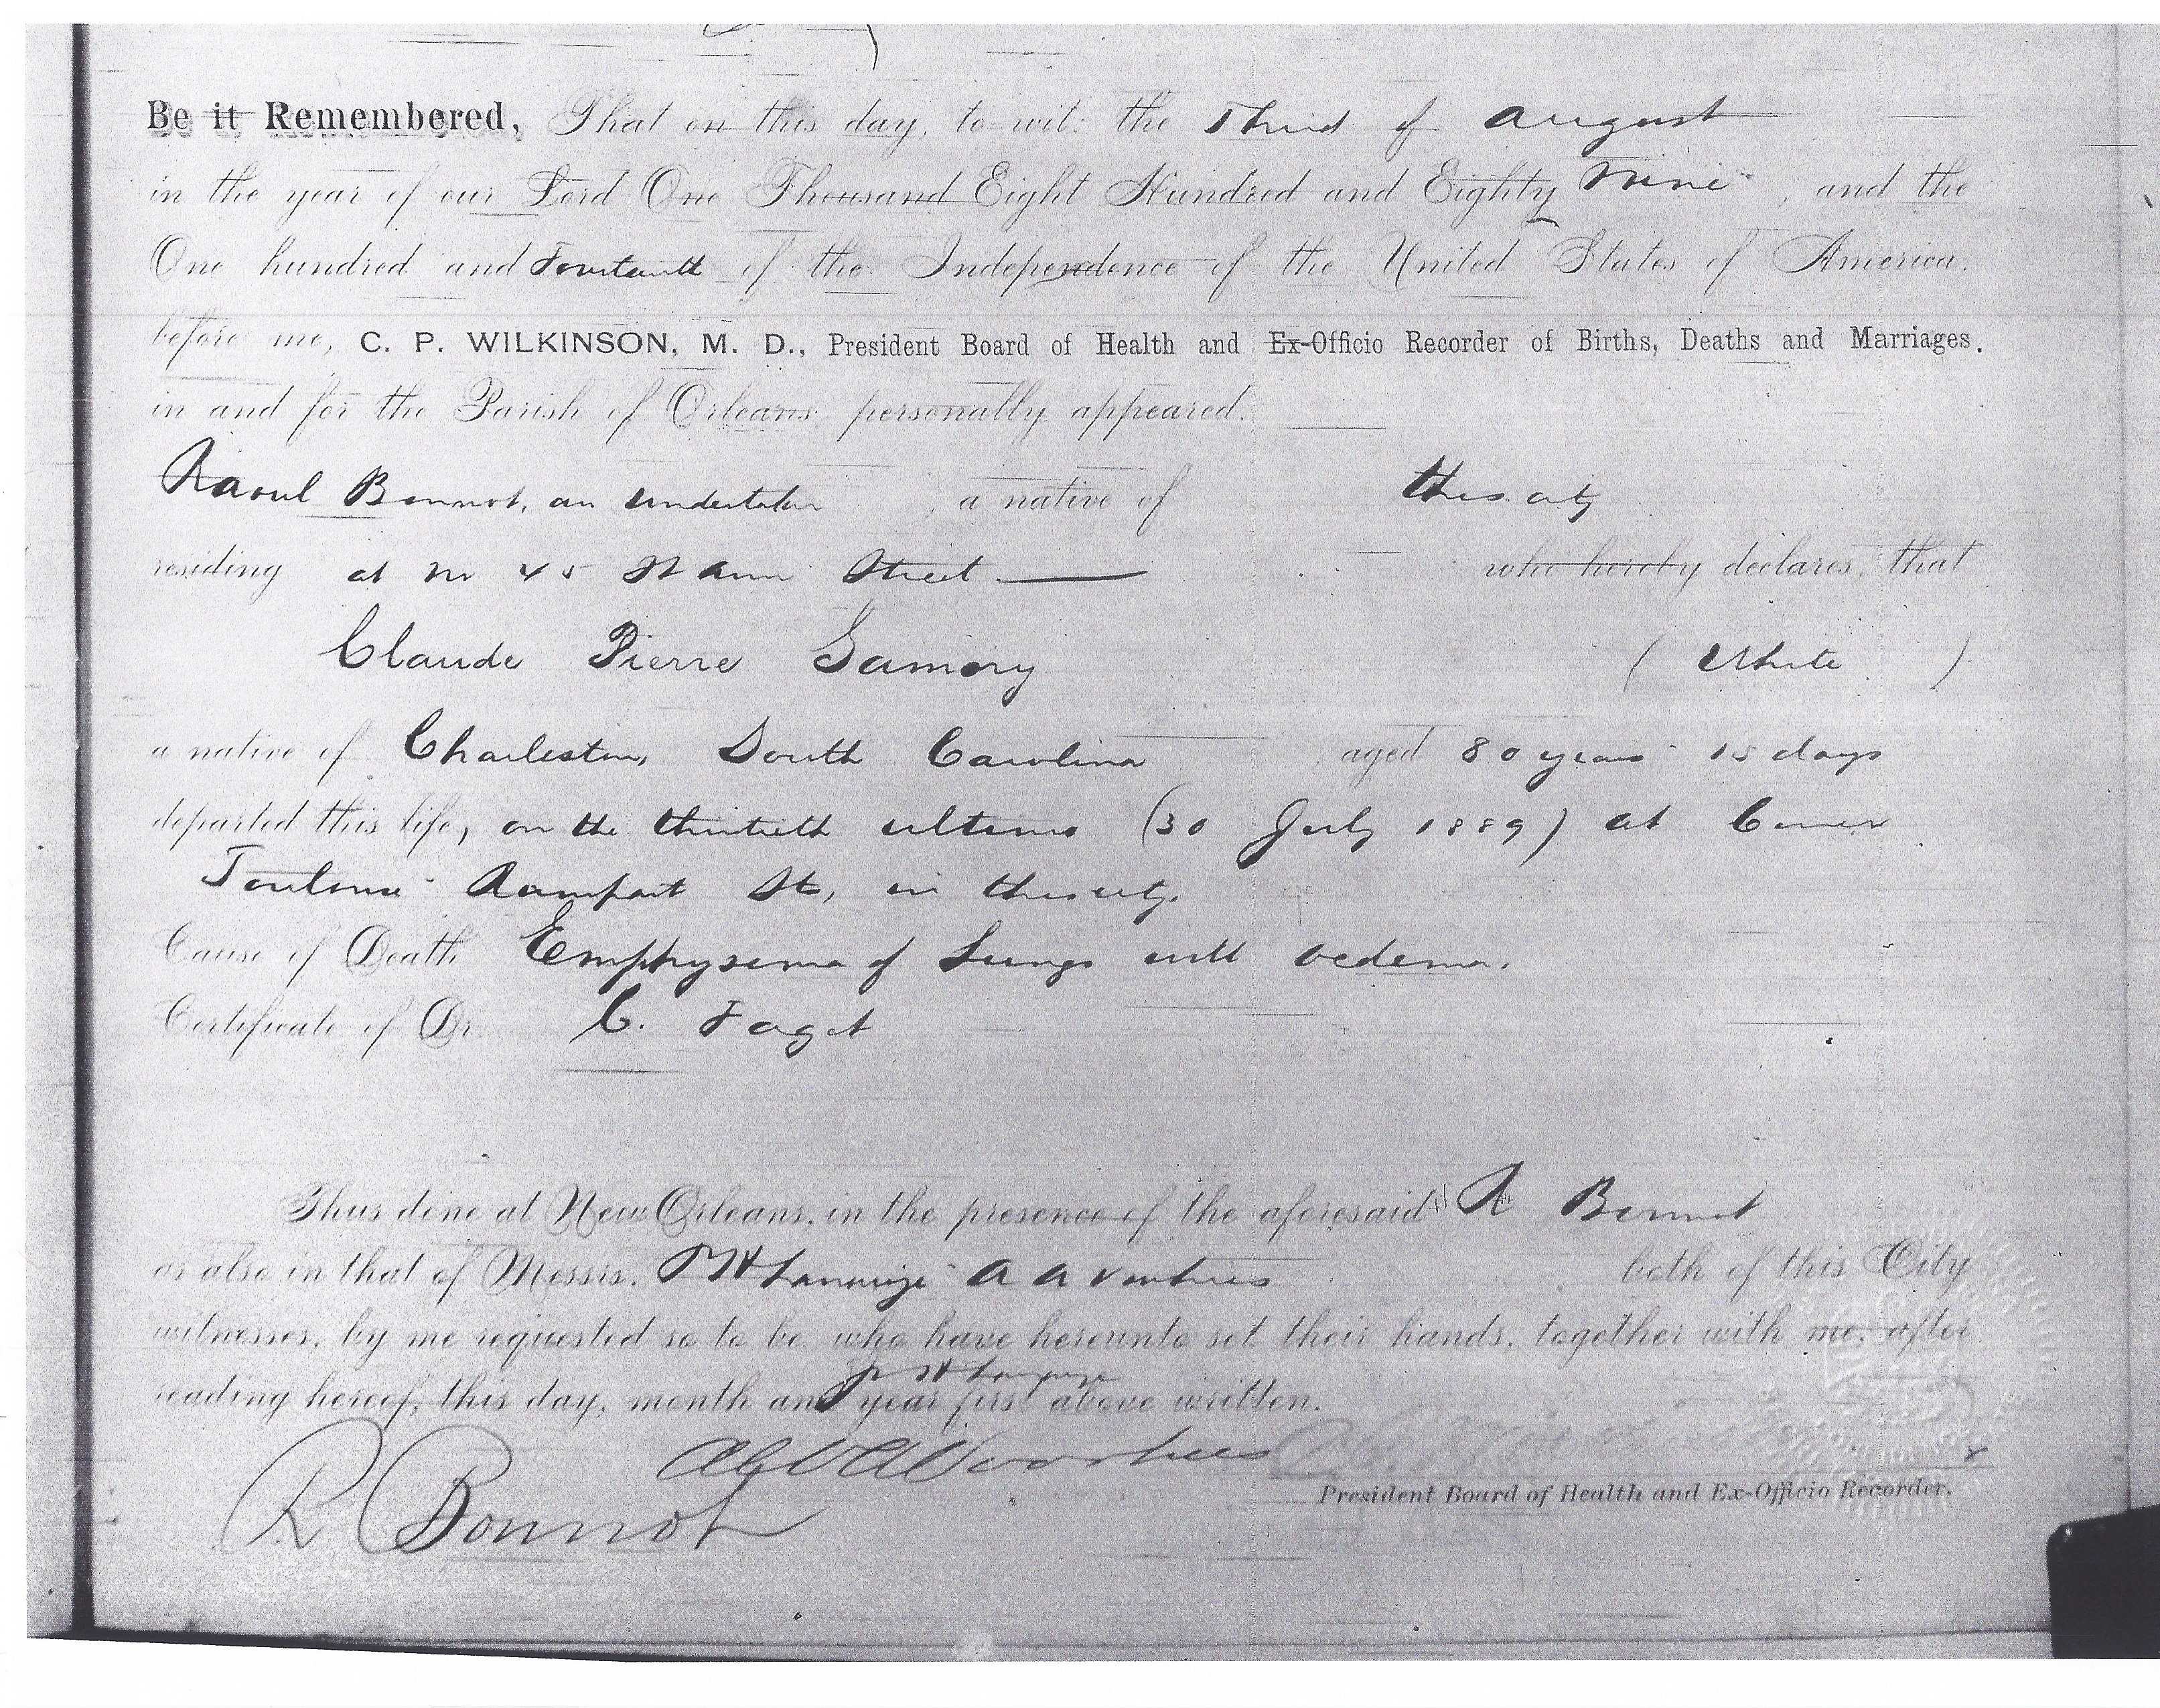 Be it Remembered, That on this day, to wit: the Third of August
in the year of our Lord One Thousand Eight Hundred and Eighty Nine, and the
One hundred and Fourteenth of the Independence of the United States of America,
before me, C. P. WILKINSON, M. D., President Board of Health and Ex-Officio Recorder of Births, Deaths and Marriages,
in and for the Parish of Orleans, personally appeared.
Raoul Bonnot, an undertaker, a native of this city
residing at No 45 St Ann Street who hereby declares, that
Claude Pierre Gamory (White)
a native of Charleston, South Carolina aged 80 years 15 days
departed this life, on the thirtieth ultimo (30 July 1889) at Corner
Toulouse Rampart St, in this city.
Cause of Death Emphysema of Lungs with oedema.
Certificate of Dr. C. Faget
Thus done at New Orleans, in the presence of the aforesaid R Bonnot
as also in that of Messrs. both of this City
witnesses, by me requested so to be who have hereunto set their hands, together with me, after
reading hereof, this day, month and year first above written.
R Bonnot
President Board of Health and Ex-Officio Recorder.